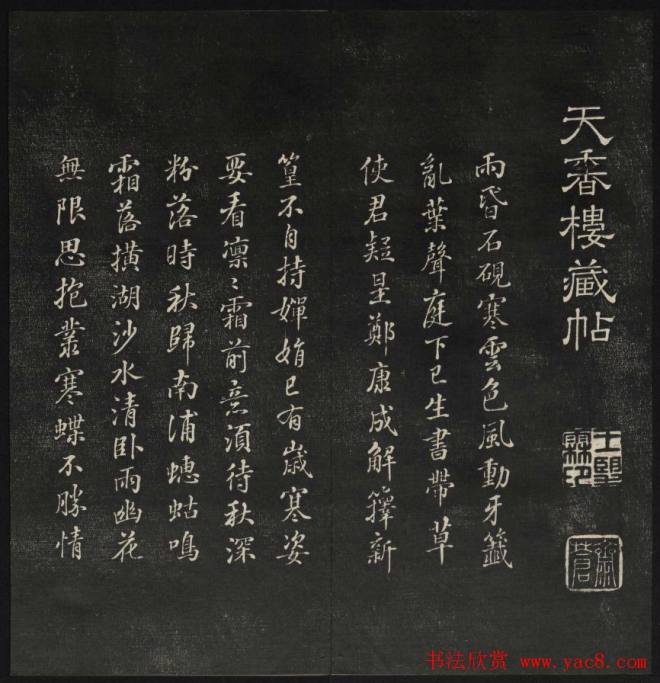 天香樓藏帖
雨昏石硯寒雲色風動牙籤
亂葉聲庭下已生書帶草
使君疑是鄭康成解籜新
篁不自持嬋娟已有歲寒姿
要看凛〻霜前意須待秋深
粉落時秋歸南浦蟪蛄鳴
霜落橫湖沙水清卧雨幽花
無限思抱叢寒蝶不勝情
王望霖印
書法欣赏 www.yac8.com